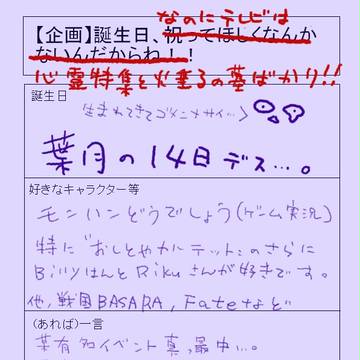 なのにテレビは
【企画】誕生日、祝ってほしくなんか
ないんだからね！！
心霊特集と火垂るの墓ばかり!!
誕生日
生まれてきてゴメンナサイ…
葉月の14日デス…。
好きなキャラクター等
モンハンどうでしょう(ゲーム実況)
特に"おしとやかにテット"のさらに
BillyはんとRikuさんが好きです。
他,戦国BASARA,Fateなど
(あれば)一言
某有名イベント真っ最中…。